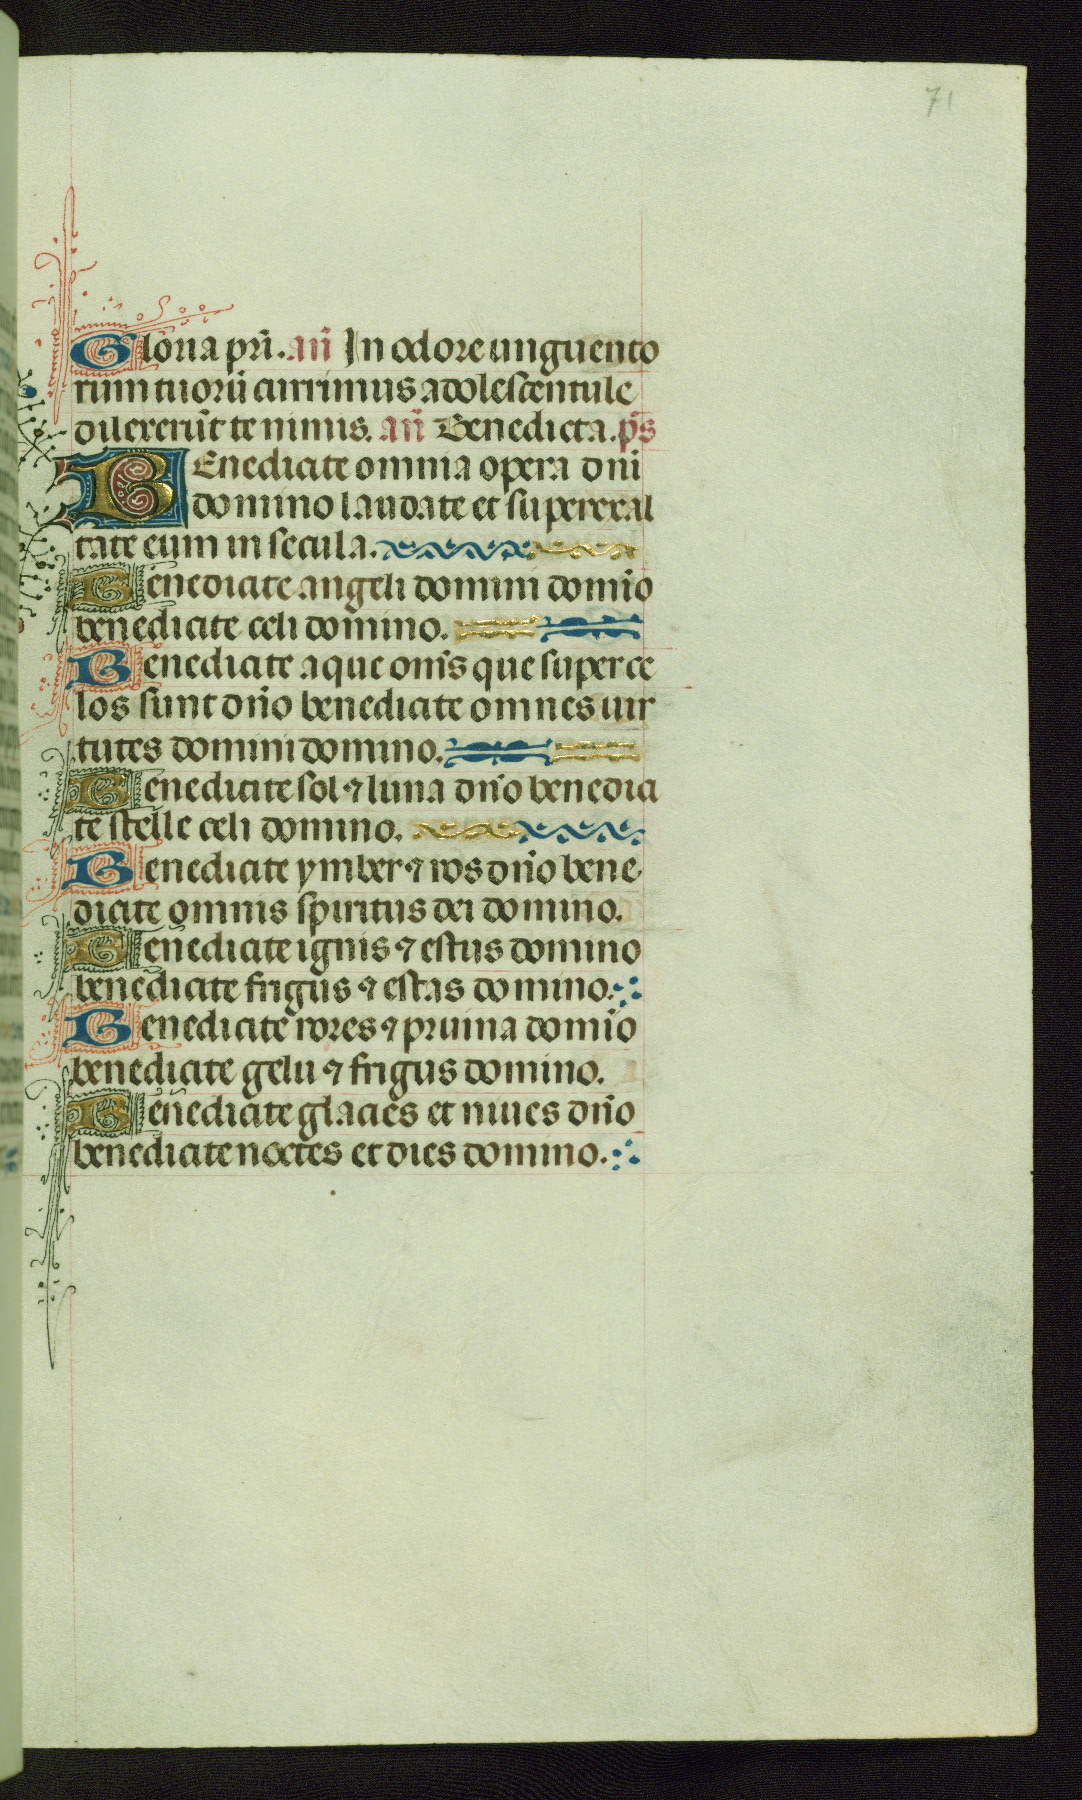 71
Gloria pri̅. an̅ In odore unguento
rum tuoru̅ currimus adolescentule
dilexeru̅t te nimis. an̅ Benedicta. ps̅
BEnedicite omnia opera dn̅i
domino laudate et superexal
tate eum in secula.
Benedicite angeli domini domi̅o
benedicite celi domino.
Benedicite aque om̅s que super ce
los sunt dn̅o benedicite omnes uir
tutes domini domino.
Benedicite sol ⁊ luna dn̅o benedici
te stelle celi domino.
Benedicite ymber ⁊ ros dn̅o bene
dicite omnis spiritus dei domino.
Benedicite ignis ⁊ estus domino
benedicite frigus ⁊ estas domino.
Benedicite rores ⁊ pruina domi̅o
benedicite gelu ⁊ frigus domino.
Benedicite glacies et niues dn̅o
benedicite noctes et dies domino.